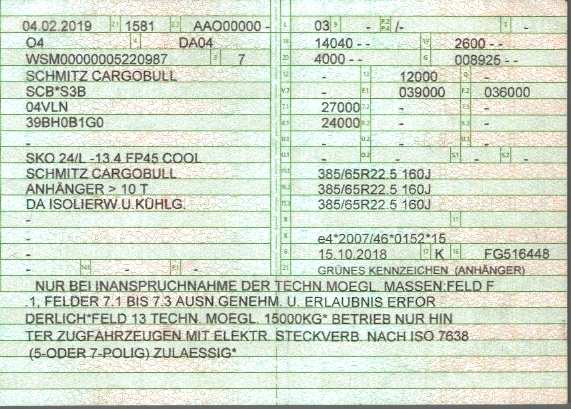 04.02.2019 2.1 1581 2.2 AAO00000 - L 03 9 - P.2 P.4 /- T -
O4 4 DA04 18 14040 - - 19 2600 - -
WSM00000005220987 3 7 20 4000 - - G 008925 - -
SCHMITZ CARGOBULL 12 - 13 12000 Q -
SCB*S3B V.7 - F.1 039000 F.2 036000
04VLN 7.1 27000 7.2 - 7.3 -
39BH0B1G0 8.1 24000 8.2 - 8.3 -
- U.1 - U.2 - U.3 -
SKO 24/L -13.4 FP45 COOL O.1 - O.2 - S.1 - S.2 -
SCHMITZ CARGOBULL 15.1 385/65R22.5 160J
ANHÄNGER > 10 T 15.2 385/65R22.5 160J
DA ISOLIERW.U.KÜHLG. 15.3 385/65R22.5 160J
- - 11
- K e4*2007/46*0152*15
- 6 15.10.2018 17 K 16 FG516448
- 14.1 - P.1 - 21 GRÜNES KENNZEICHEN (ANHÄNGER)
NUR BEI INANSPRUCHNAHME DER TECHN.MOEGL. MASSEN:FELD F
.1, FELDER 7.1 BIS 7.3 AUSN.GENEHM. U. ERLAUBNIS ERFOR
DERLICH*FELD 13 TECHN. MOEGL. 15000KG* BETRIEB NUR HIN
TER ZUGFAHRZEUGEN MIT ELEKTR. STECKVERB. NACH ISO 7638
(5-ODER 7-POLIG) ZULAESSIG*